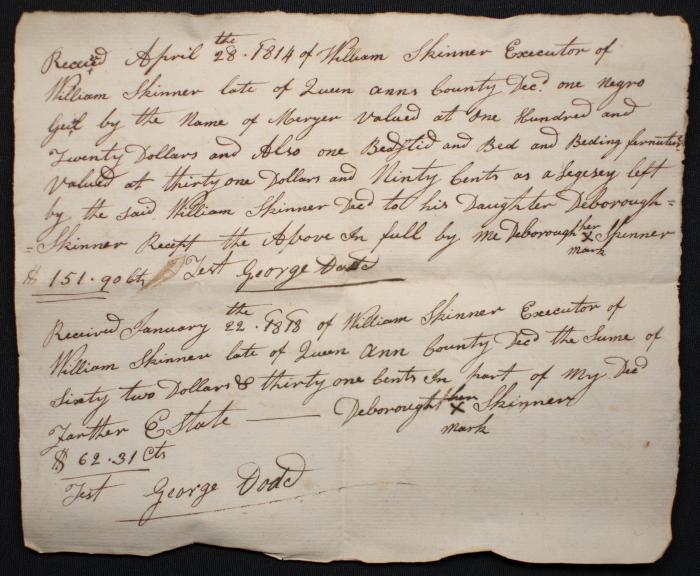 Received April the 28. 1814 of William Skinner Executor of
William Skinner late of Queen anns County Decd. one Negro
Geil by the Name of Meryer Valued at one Hundred and
Twenty Dollars and Also one Bedstid and Bed and Beding
Valued at thirty one Dollars and Ninty Cents as a Legesey left
by the Said William Skinner Decd to his Daughter Deborough =
= Skinner Receipt the Above In full by me Deborough her X mark Skinner
$ 151.90 Cts Test George Dodd
Received January the 22. 1818 of William Skinner Executor of
William Skinner late of Queen Ann County Decd the Sume of
Sixty two Dollars & thirty one Cents In part of My Decd
Farther Estate — Deborough her X mark Skinner
$ 62.31 Cts
Test George Dodd